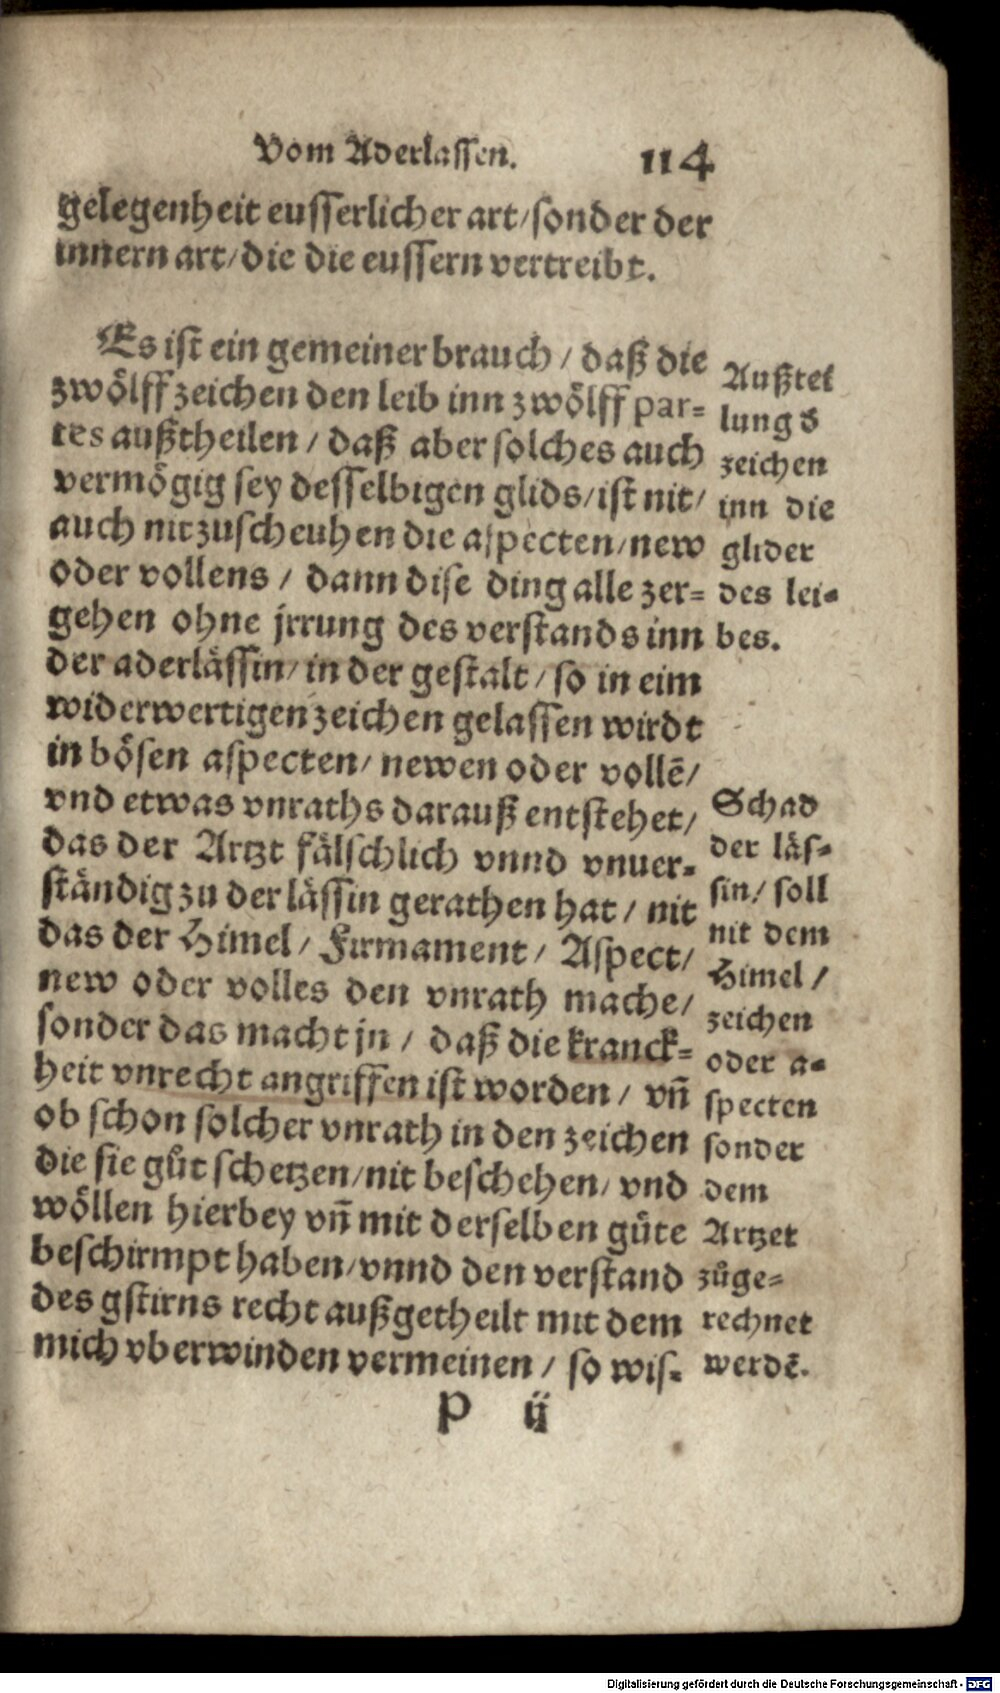 Vom Aderlassen. 114
gelegenheit eusserlicher art/sonder der
innern art/die die eussern vertreibt.
Es ist ein gemeiner brauch / daß die
zwölff zeichen den leib inn zwölff par-
tes außtheilen / daß aber solches auch
vermögig sey desselbigen glids/ist nit/
auch nit zuscheuhen die aspecten/new
oder vollens / dann dise ding alle zer-
gehen ohne jrrung des verstands inn
der aderlässin/in der gestalt / so in eim
widerwertigen zeichen gelassen wirdt
in bösen aspecten/ newen oder vollẽ/
vnd etwas vnraths darauß entstehet/
das der Artzt fälschlich vnnd vnuer-
ständig zu der lässin gerathen hat / nit
das der Himel / Firmament / Aspect/
new oder volles den vnrath mache/
sonder das macht jn / daß die kranck-
heit vnrecht angriffen ist worden / vñ
ob schon solcher vnrath in den zeichen
die sie gůt schetzen/nit beschehen/ vnd
wöllen hierbey vñ mit derselben güte
beschirmpt haben/vnnd den verstand
des gstirns recht außgetheilt mit dem
mich vberwinden vermeinen / so wis-
P ij
Außtei
lung d̕
zeichen
inn die
glider
des lei-
bes.
Schad
der läs-
sin/ soll
nit dem
Himel /
zeichen
oder a-
specten
sonder
dem
Artzet
zůge-
rechnet
werdẽ.
Digitalisierung gefördert durch die Deutsche Forschungsgemeinschaft - DFG